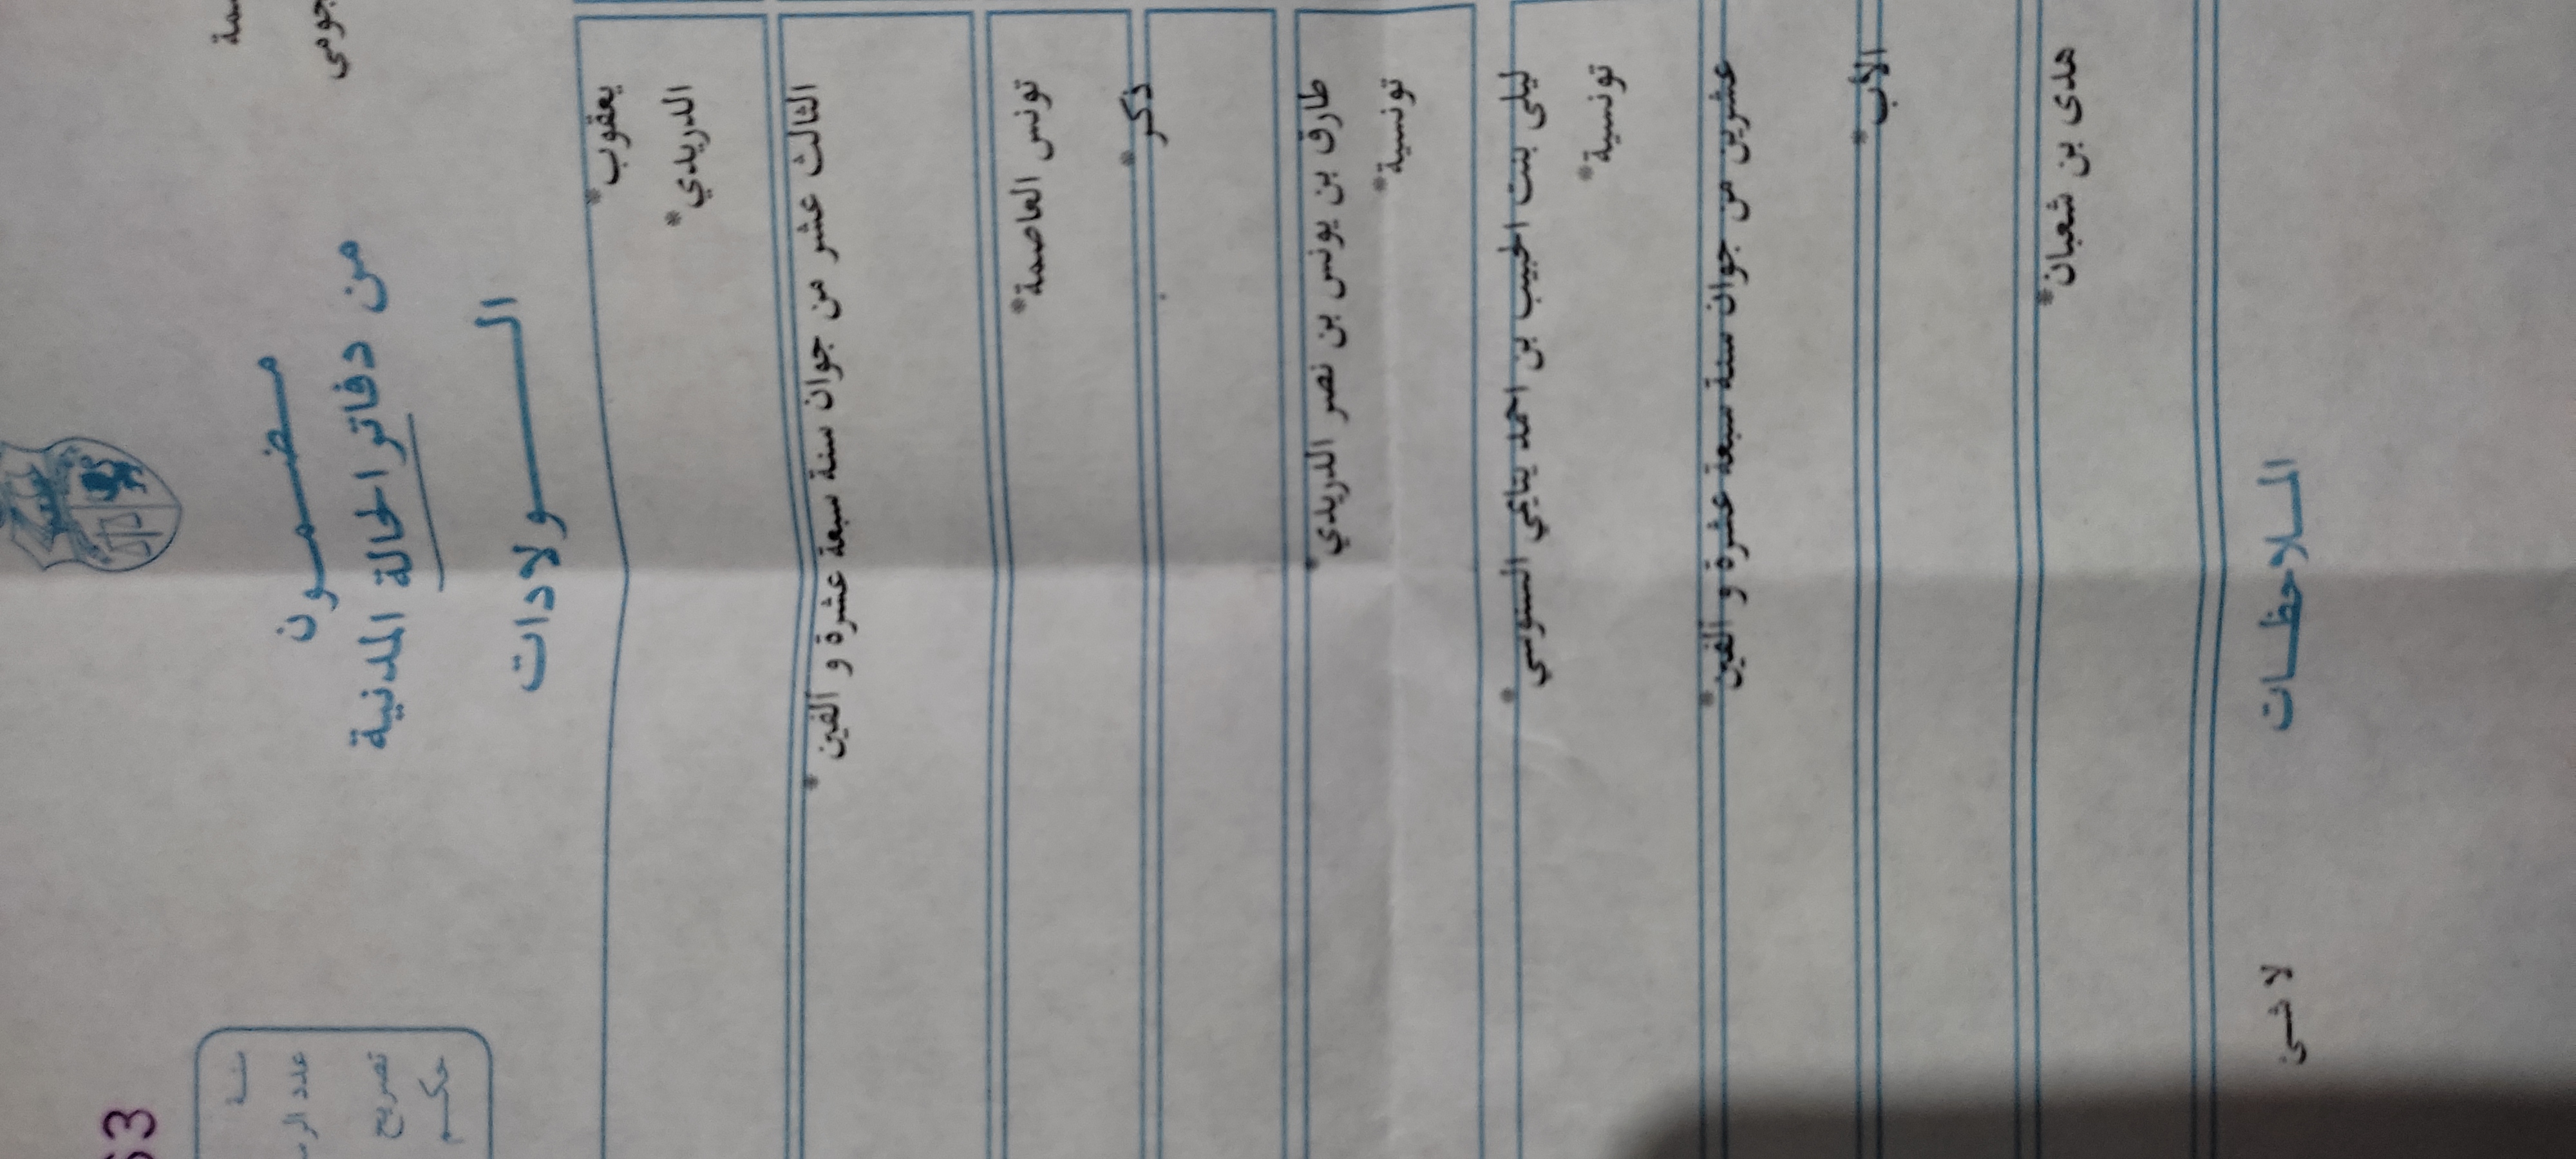 مضمون
من دفاتر الحالة المدنية
الولادات
سنة
عدد الرسم
تصريح
حكم
63
يعقوب*
الدريدي*
الثالث عشر من جوان سنة سبعة عشرة و ألفين *
تونس العاصمة*
ذكر*
طارق بن يونس بن نصر الدريدي*
تونسية*
ليلى بنت الحبيب بن احمد يتايمي السنوسي*
تونسية*
عشرين من جوان سنة سبعة عشرة و ألفين*
الأب*
هدى بن شعبان*
الملاحظات
لا شىئ